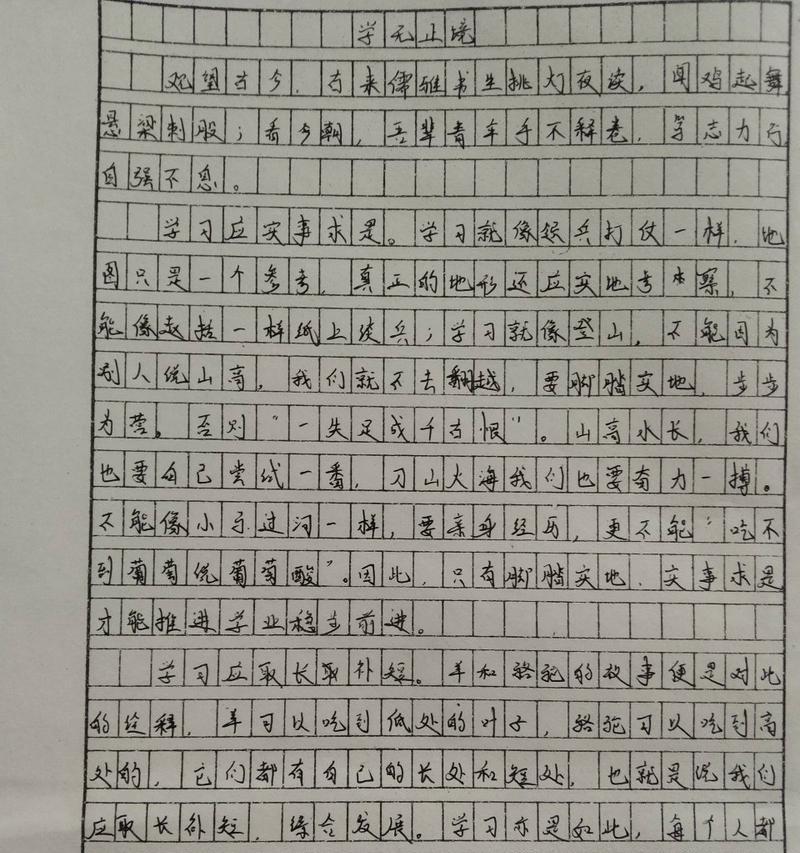 学无止境
观望古今，古来儒雅书生挑灯夜读，闻鸡起舞
悬梁刺股；看今朝，吾辈青年手不释卷，学志力行
自强不息。
学习应实事求是。学习就像领兵打仗一样，地
图只是一个参考，真正的地形还应实地考察，不
能像赵括一样纸上谈兵；学习就像登山，不能因为
别人说山高，我们就不去翻越，要脚踏实地，步步
为营。否则“一失足成千古恨”。山高水长，我们
也要自己尝试一番，刀山火海我们也要奋力一搏。
不能像小马过河一样，要亲身经历，更不能“吃不
到葡萄说葡萄酸”。因此，只有脚踏实地，实事求是
才能推进学业稳步前进。
学习应取长取补短。羊和骆驼的故事便是对此
的诠释，羊可以吃到低处的叶子，骆驼可以吃到高
处的，它们都有自己的长处和短处，也就是说我们
应取长补短，综合发展。学习亦是如此，每个人都